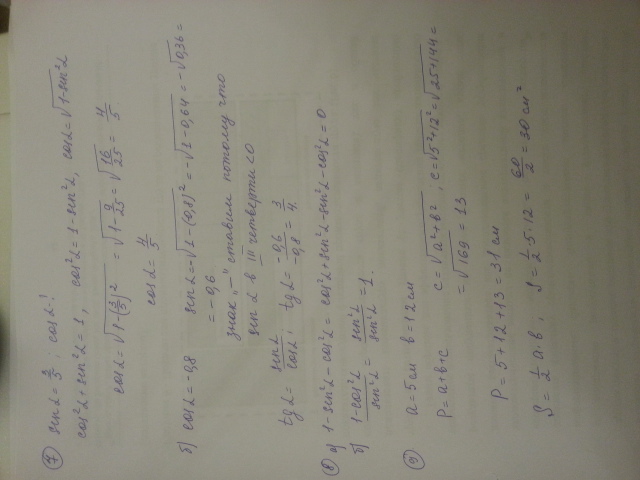 ⑦ sinα = 3/5 ; cosα-?
cos²α + sin²α = 1, cos²α = 1-sin²α, cosα = √(1-sin²α)
cosα = √(1-(3/5)²) = √(1-9/25) = √(16/25) = 4/5
cosα = 4/5
б) cosα = -0,8 sinα = -√(1-(0,8)²) = -√(1-0,64) = -√0,36 =
= -0,6
знак „-" ставим потому что
sin α в III четверти <0
tgα = sinα/cosα; tgα = -0,6/-0,8 = 3/4.
⑧ а) 1-sin²α-cos²α = cos²α+sin²α-sin²α-cos²α = 0
б) 1-cos²α/sin²α = sin²α/sin²α = 1.
⑨ a = 5см b = 12см
P = a+b+c c = √(a²+b²) ; c = √(5²+12²) = √(25+144) =
= √169 = 13
P = 5+12+13 = 31 см
S = 1/2 a·b, S = 1/2·5·12 = 60/2 = 30 см²